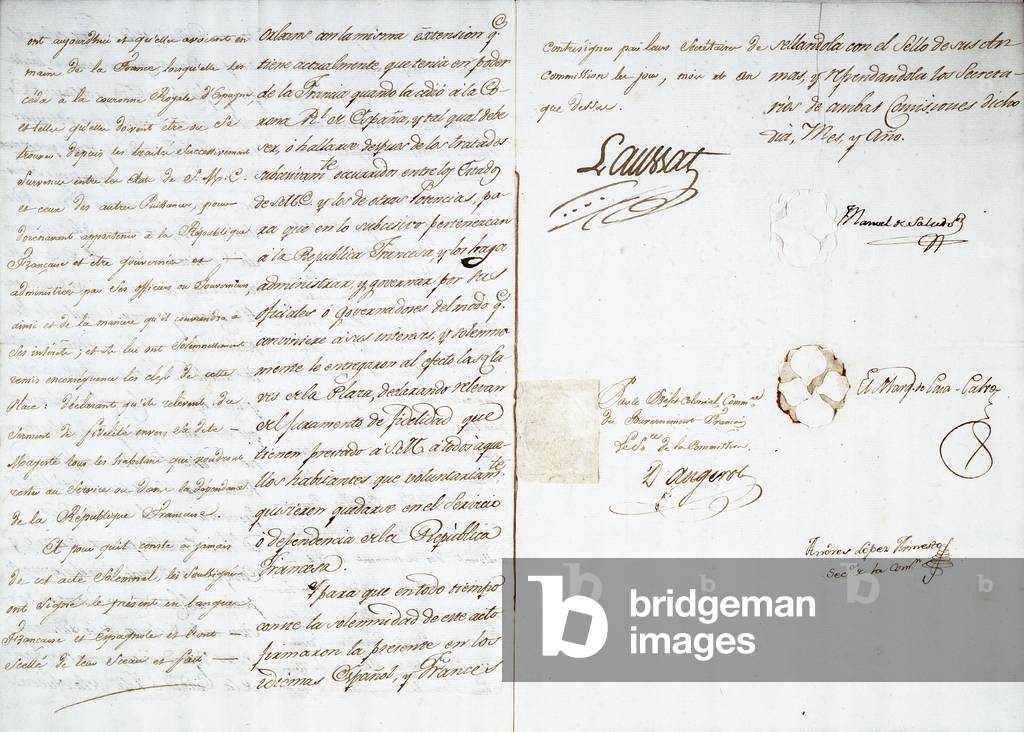 ont aujourdhui et qu'elle avoient en
mains de la France, lorsqu'elle les
céda à la couronne Royale d'Espagne,
et telle qu'elle doivent être ou se
trouver depuis les traités successivement
survenus entre les états de S. M. C.
et ceux des autres Puissances, pour
dorénavant appartenir à la République
Française et être gouvernée et —
administrée par ses officiers ou Gouverneurs,
ainsi et de la manière qu'il conviendra à
ses intérêts; et lui ont solemnellement
remis en conséquence les clefs de cette
Place: déclarant qu'ils relèvent du
serment de fidélité envers sa dite —
Majesté tous les habitans qui voudront
rester au Service ou dans la dépendance
de la République Française.
Et pour qu'il conste à jamais
de cet acte Solemnel, les Soussignés
ont signé le présent en langues
Française et Espagnole et l'ont —
scellé de leur Sceau et fait —
con la misma extension q.e
tiene actualmente, que tenia en poder
de la Francia quando la cedió à la Co-
rona R.l de España, y tal qual debe
ser, ó hallarse despues de los tratados
subcesivam.te ocurridos entre los Estados
de S.M.C. y los de otras Potencias, pa-
ra que en lo subcesivo pertenezcan
à la Republica Francesa y los haga
administrar, y governar por sus
oficiales ó governadores del modo q.e
conviniere à sus intereses, y solemne
mente le entregaron al efecto las lla-
ves de la Plaza, declarando relevan
del juramento de fidelidad que
tienen prestado à S.M. à todos aque-
llos habitantes que voluntariam.te
quisieren quedarse en el Servicio
ó dependencia de la República
Francesa.
Y para que en todo tiempo
conste la solemnidad de este acto
firmaron la presente en los
idiomas Español, y Francés
contresigner par leurs Secrétaires de
commission les jour, mois et an
que dessus.
sellandola con el Sello de sus Ar-
mas, y refrendandola los Secreta-
rios de ambas Comisiones dicho
dia, Mes, y Año.
Laussat
Manuel de Salcedo
Par le Préfet Colonial Comm.re
du Gouvernement Français
Le S.re de la Commission
Daugerot
El Marq.s de Casa-Calvo
Andres Lopez Armesto
Sec.o de la Com.n
b
bridgeman
images
b
b
b